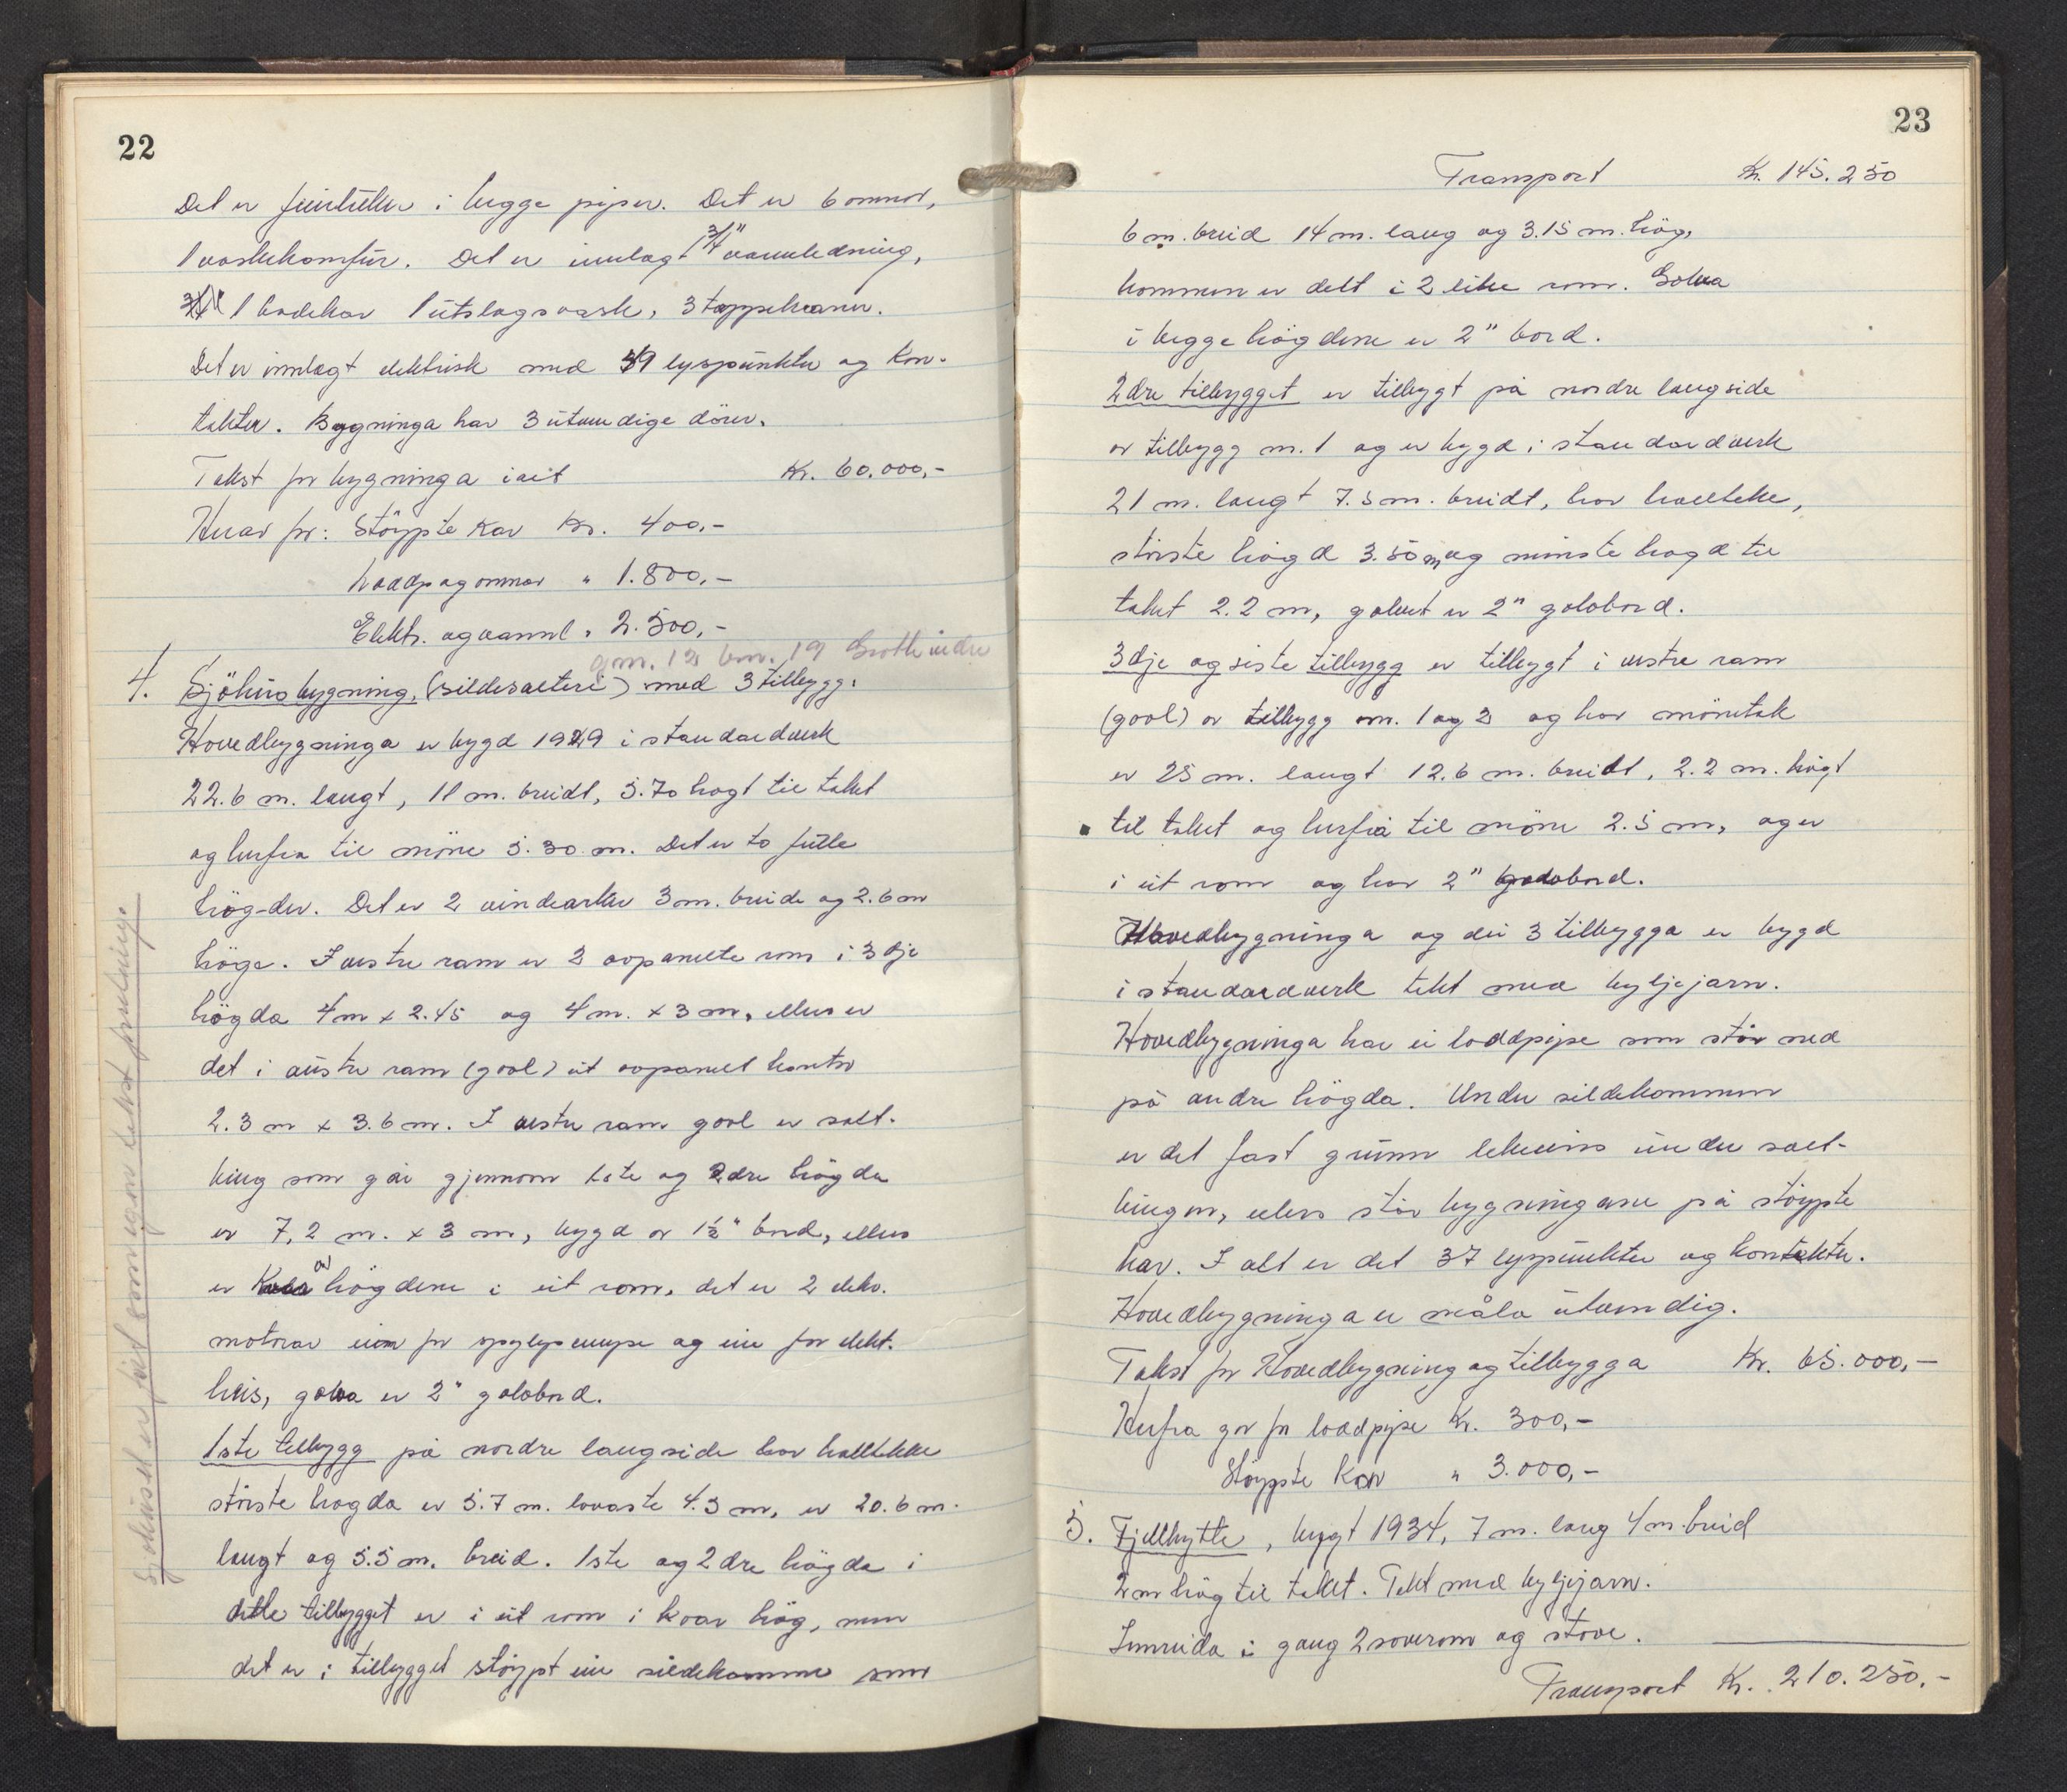 22
Det er feiertüller i begge piper. Det er 6 omnar,
1 vaskekomfür. Det er innlagt 1 3/4" vannledning,
1 badekar 1 ütslagsvask, 3 tappekraner.
Det er innlagt elektrisk med 39 lyspünkter og kon-
takter. Bygningа har 3 ütvendige dörer.
Takst for bygninga iait Kr. 60.000,-
Herav for: Stöypte kar Kr. 400,-
Loddp og omnar " 1.800,-
Elektr. og vannl " 2.500,-
gnr. 12 bnr. 19 Grotle indre
4. Sjöhüsbygning, (sildesalteri) med 3 tilbygg.
Hovedbygninga er bygd 1929 i standardverk
22.6 m. langt, 11 m. breidt, 5.70 högt til taket
og herfra til möne 5.30 m. Det er to fülle
högder. Det er 2 vindearker 3 m. breide og 2.6 m
höge. I vestre ram er 2 avpanelte rom i 3dje
högda 4m x 2.45 og 4 m. x 3 m, ellers er
det i aüstre ram (gavl) eit avpanelt kontor
2.3 m x 3.6 m. I vestre ram gavl er salt-
bing som går gjennom 1ste og 2dre högda
er 7,2 m. x 3 m, bygd av 1½" bord, ellers
er kvar högdene i eit rom, det er 2 elekt.
motorar ein for spylepumpe og ein for elekt.
heis, golva er 2" golvbord.
1ste tilbygg på nordre langside har halltekke
störste högda er 5.7 m. lavaste 4.3 m, er 20.6 m.
langt og 5.5 m. breid. 1ste og 2dre högda i
dette tilbygget er i eit rom i kvar hög, men
det er i tilbygget stöypt ein sildekamme som
Sjøhuset er ført som egen takst forutningr.
23
Transport Kr. 145.250
6 m. breid 14 m. lang og 3.15 m. hög,
kommen er delt i 2 like rom. Golva
i begge högdene er 2" bord.
2dre tilbygget er tilbygt på nordre langside
av tilbygg nr. 1 og er bygd i standardverk
21 m. langt 7.5 m. breidt, har halltekke,
störste högd 3.50 m og minste högd til
taket 2.2 m, golvet er 2" golvbord.
3dje og siste tilbygg er tilbygt i vestre ram
(gavl) av tilbygg nr. 1 og 2 og har mönetak
er 25 m. langt 12.6 m. breidt, 2.2 m. högt
til taket og herfrå til möne 2.5 m, og er
i eit rom og har 2" golvbord.
Hovedbygninga og dei 3 tilbygga er bygd
i standardverk tekt med bylgjejarn.
Hovedbygninga har ei loddpipe som står ned
på andre högda. Under sildekommen
er det fast grünn likeeins ünder salt-
bingen, ellers står bygningane på stöypte
kar. I alt er det 37 lyspünkter og kontakter.
Hovedbygninga er måla ütvendig.
Takst for Hovedbygning og tilbygga Kr. 65.000,-
Herfra gor for loddpipe Kr. 300,-
Stöypte kar " 3.000,-
5. Fjellhytte, bygt 1934, 7 m. lang 4 m. breid
2 m hög til taket. Tekt med bylgjejarn.
Innreida i gang 2 soverom og stove.
Transport Kr. 210.250,-